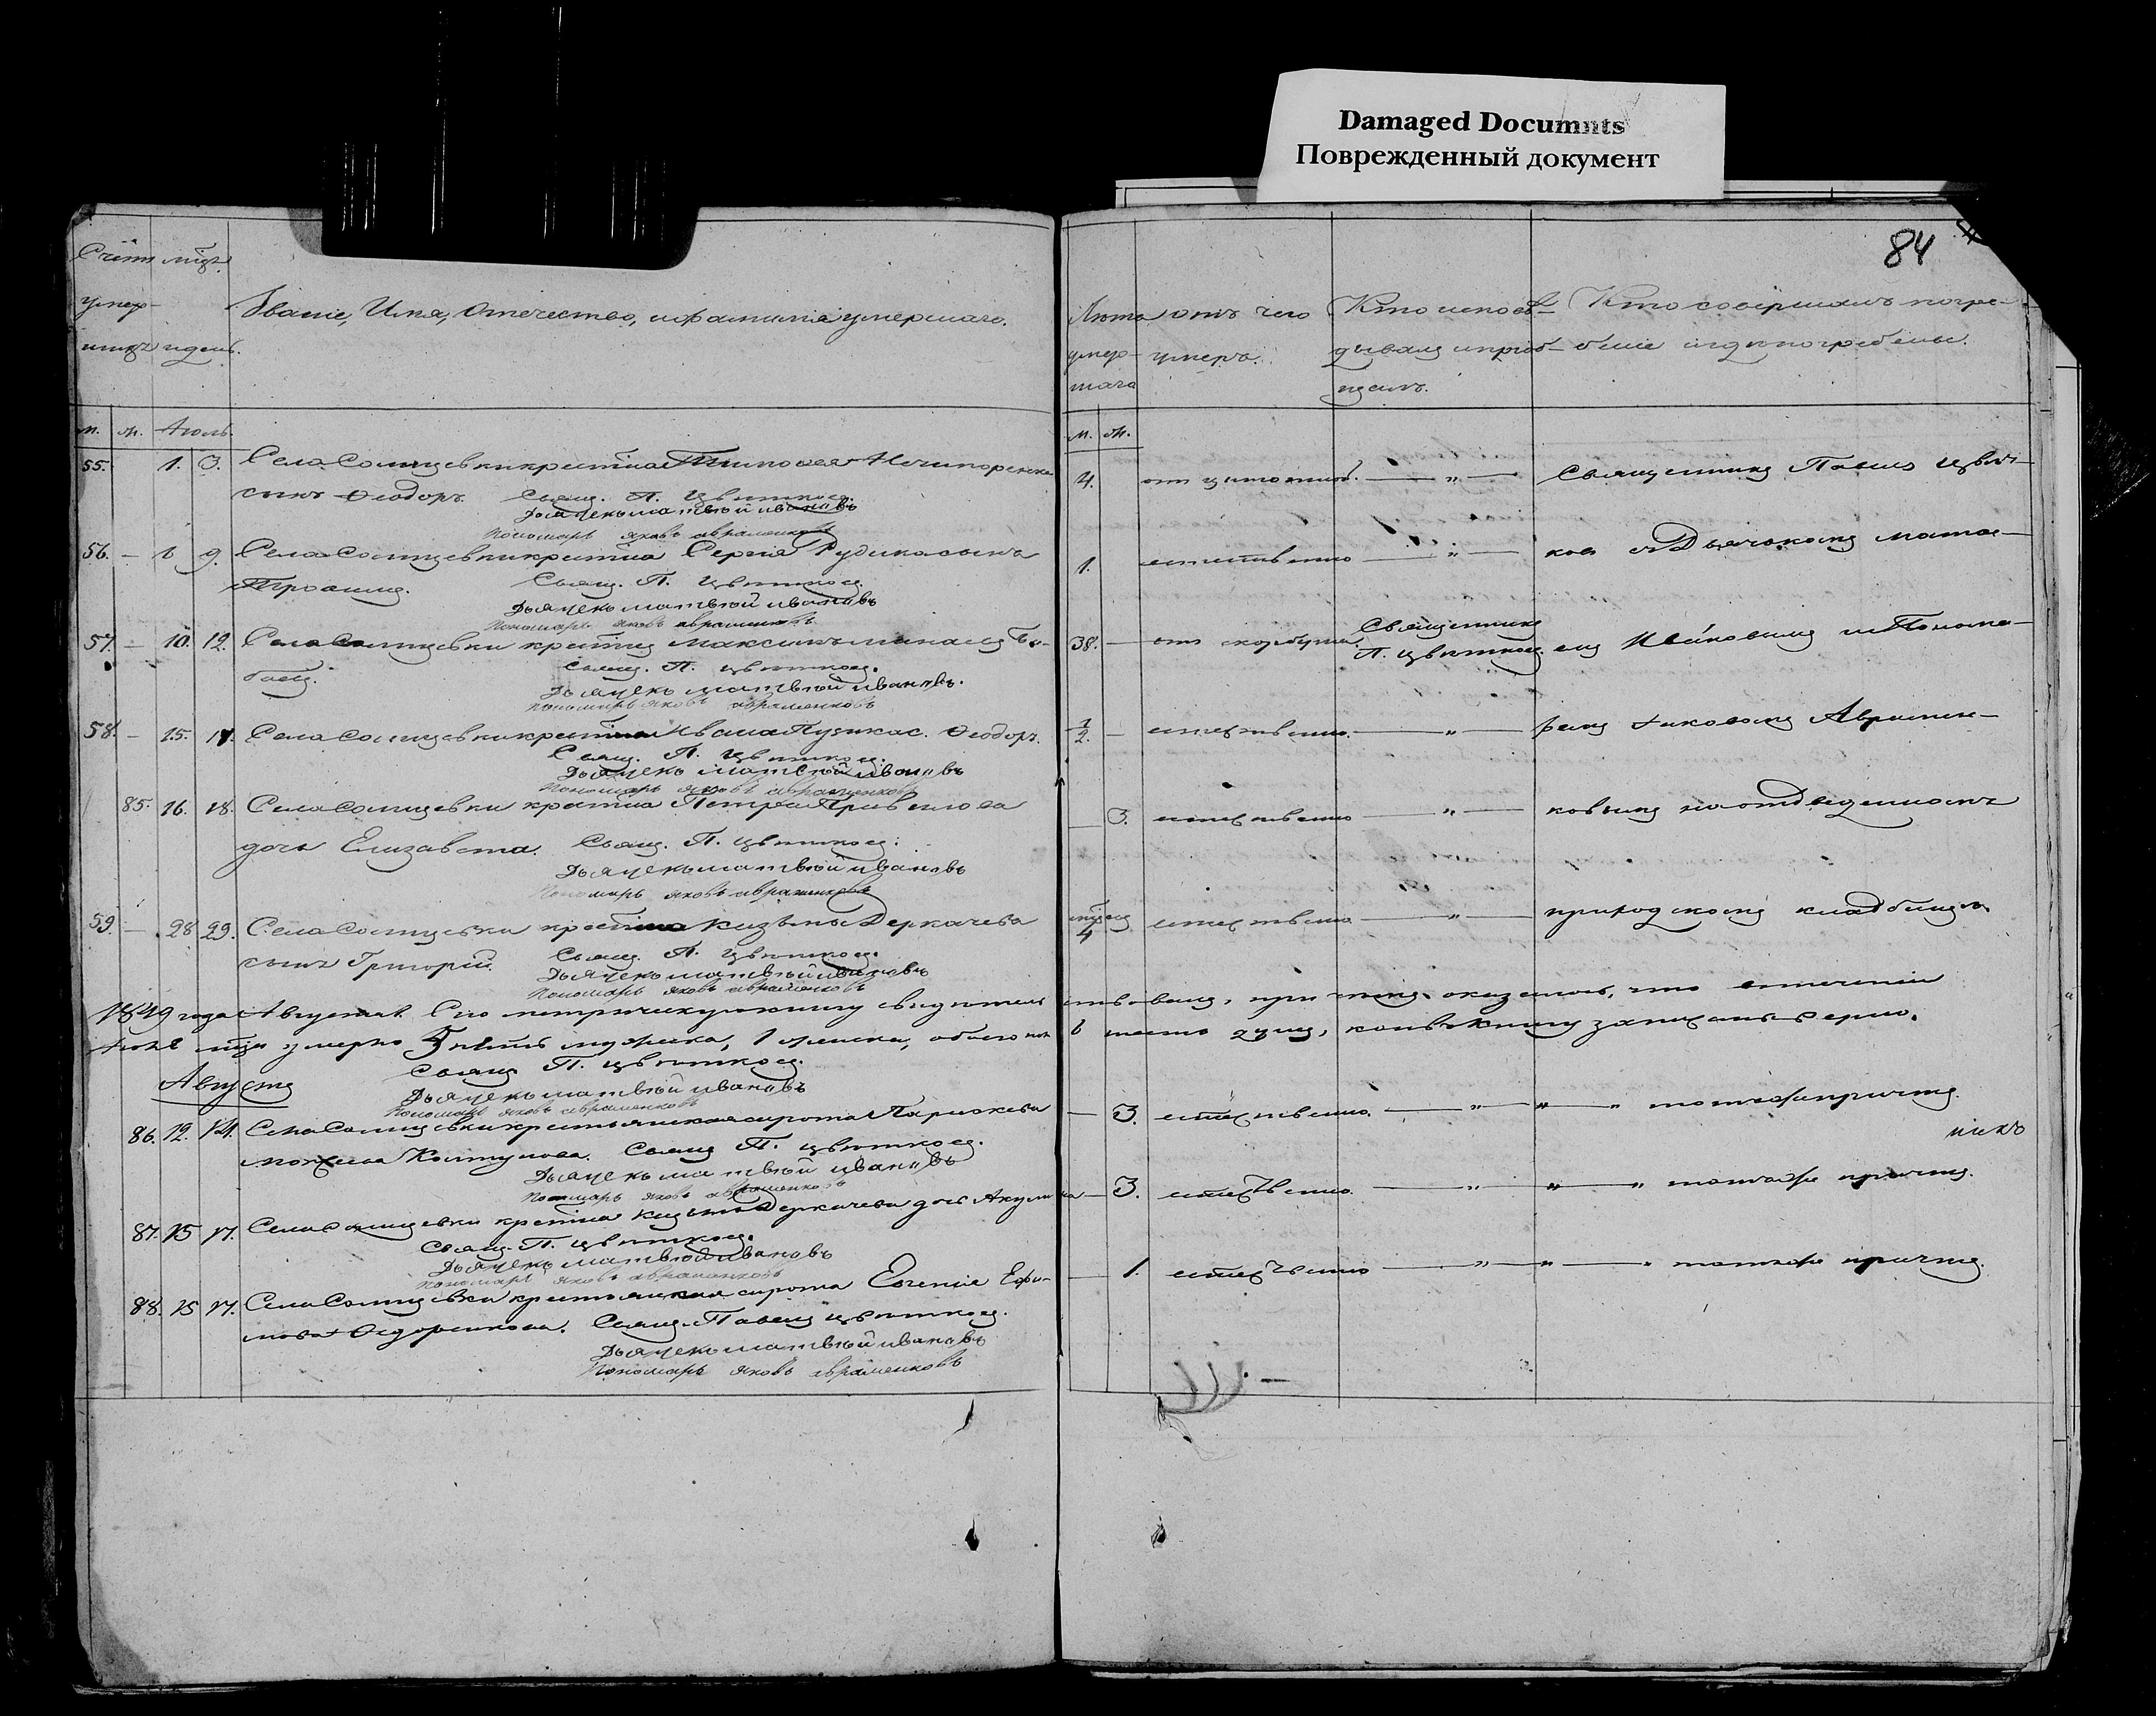 Damaged Documnts
Поврежденный документ
84
Счетъ мцъ
умер-
шихъ и день.
Званіе, Имя, Отечество, и фамилія умершаго.
Лета
умер-
шаго
отъ чего
умеръ.
Кто исповѣ-
дывалъ и пріоб-
щалъ.
Кто совершалъ погре-
беніе и гдѣ погребены.
м. ж. Іюль.
м. ж.
55. 1. 3. Села Солнцевки крестіна Нечипоренка
сынъ Ѳеодоръ. Свящ. П. Цвѣтковъ.
Дьячекъ Матвѣй Ивановъ
Пономарь Яковъ Авраменковъ
4. Священникъ Павелъ Цвѣт-
56. — 9. Села Солнцевки крестіна Сергія Рудика сынъ
Трофимъ. Свящ. П. Цвѣтковъ.
Дьячекъ Матвѣй Ивановъ
Пономарь Яковъ Авраменковъ
1. естественно — „ — ковъ съ Дьячкомъ Матвѣ-
57. — 10. 12. Села Солнцевки крестінъ Максимъ
Свящ. П. Цвѣтковъ.
Дьячекъ Матвѣй Ивановъ.
Пономарь Яковъ Авраменковъ
38. — Священникъ
П. Цвѣтковъ емъ Ивановымъ и Понома-
58. — 15. 17. Села Солнцевки крестіна Ивана Пузика с. Ѳеодоръ.
Свящ. П. Цвѣтковъ.
Дьячекъ Матвѣй Ивановъ
Пономарь Яковъ Авраменковъ
1/2. — естественно. — „ — ремъ Яковомъ Аврамен-
85. 16. 18. Села Солнцевки крестіна Петра
дочь Елизавета. Свящ. П. Цвѣтковъ.
Дьячекъ Матвѣй Ивановъ
Пономарь Яковъ Авраменковъ
— 3. естественно — „ — ковымъ на отведенномъ
59. — 28. 29. Села Солнцевки крестіна Кузьмы Деркачева
сынъ Григорій. Свящ. П. Цвѣтковъ.
Дьячекъ Матвѣй Ивановъ
Пономарь Яковъ Авраменковъ
4 естественно — „ — приходскомъ кладбищѣ.
1849 года Августа 1. Сію метрическую книгу свидѣтельствовали, при чемъ оказалось, что въ теченіи
Іюля мца умерло 5 пять мужска, 1 женска, обоего пола 6 шесть душъ, коихъ въ книгу записаны вѣрно.
Свящ. П. Цвѣтковъ.
Дьячекъ Матвѣй Ивановъ
Пономарь Яковъ Авраменковъ
Августъ
86. 12. 14. Села Солнцевки крестьянская сирота Параскева
Свящ. П. Цвѣтковъ.
Дьячекъ Матвѣй Ивановъ
Пономарь Яковъ Авраменковъ
— 3. естественно. — „ — „ — „ тотже причтъ.
87. 15 17. Села Солнцевки крестіна Кузьмы Деркачева дочь Акулина
Свящ. П. Цвѣтковъ.
Дьячекъ Матвѣй Ивановъ
Пономарь Яковъ Авраменковъ
— 3. естественно. — „ — „ — „ тотже причтъ.
88. 15 17. Села Солнцевки крестьянская сирота Евгенія Ефи-
мова Ѳедоренкова. Свящ. Павелъ Цвѣтковъ.
Дьячекъ Матвѣй Ивановъ
Пономарь Яковъ Авраменковъ
— 1. естественно — „ — „ — „ тотже причтъ.